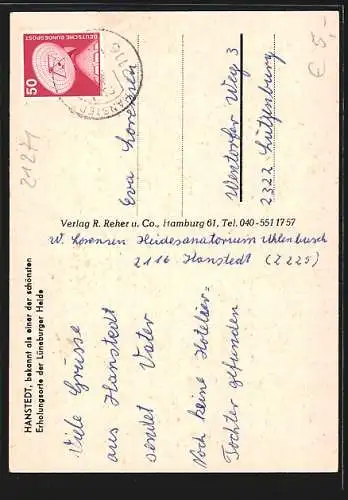 HANSTEDT, bekannt als einer der schönsten
Erholungsorte der Lüneburger Heide
Viele Grüsse
aus Hanstedt
sendet Vater
Noch keine Hotelier-
Tochter gefunden
W. Lorensen Heidesanatorium Uhlenbusch
2116 Hanstedt (Z 225)
Verlag R. Reher u. Co., Hamburg 61, Tel. 040-551 17 57
50
DEUTSCHE BUNDESPOST
2116
HANSTEDT
Eva Lorensen
Westorfer Weg 3
2322 Lütjenburg
21271
€ 5,-